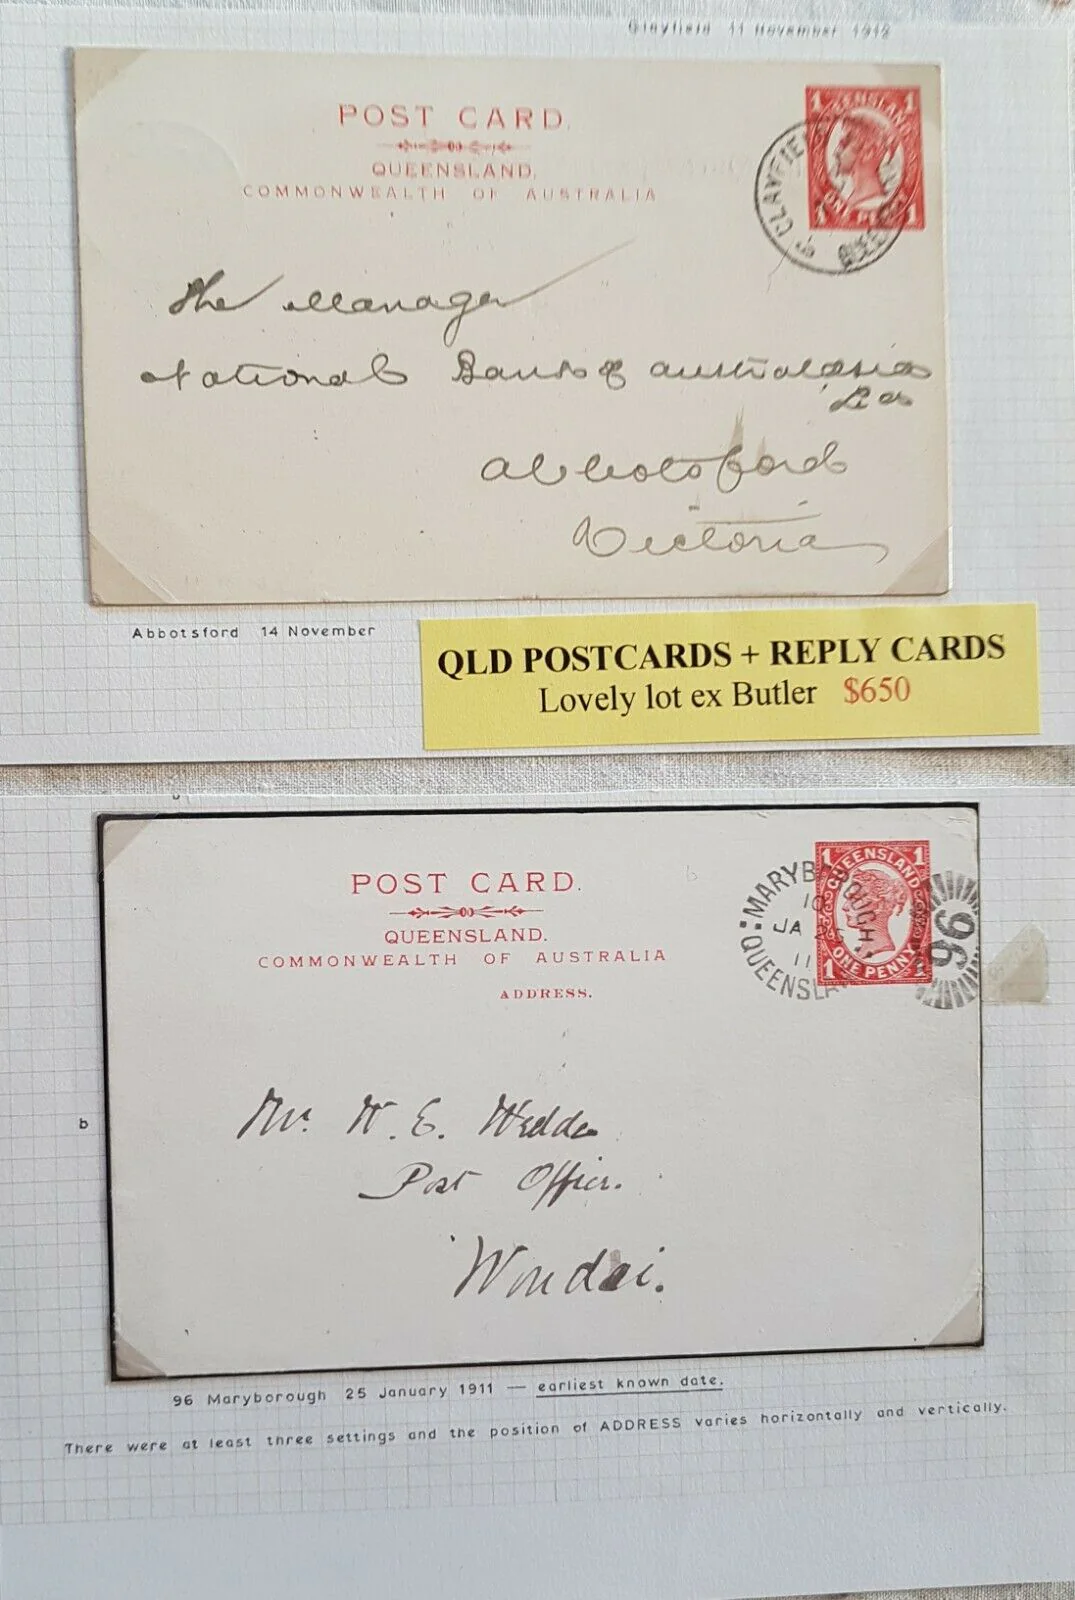 Clayfield 11 November 1912
POST CARD.
QUEENSLAND.
COMMONWEALTH OF AUSTRALIA
1 QUEENSLAND 1
ONE PENNY
CLAYFIE
The Manager
National Bank of Australasia
Abbotsford
Victoria
Abbotsford 14 November
QLD POSTCARDS + REPLY CARDS
Lovely lot ex Butler $650
POST CARD.
QUEENSLAND.
COMMONWEALTH OF AUSTRALIA
ADDRESS.
1 QUEENSLAND 1
1 ONE PENNY 1
MARYBOROUGH
10
JA 25
11
QUEENSLA
96
b
Mr. W. E. Wedde
Post Office.
Wondai.
96 Maryborough 25 January 1911 — earliest known date.
There were at least three settings and the position of ADDRESS varies horizontally and vertically.